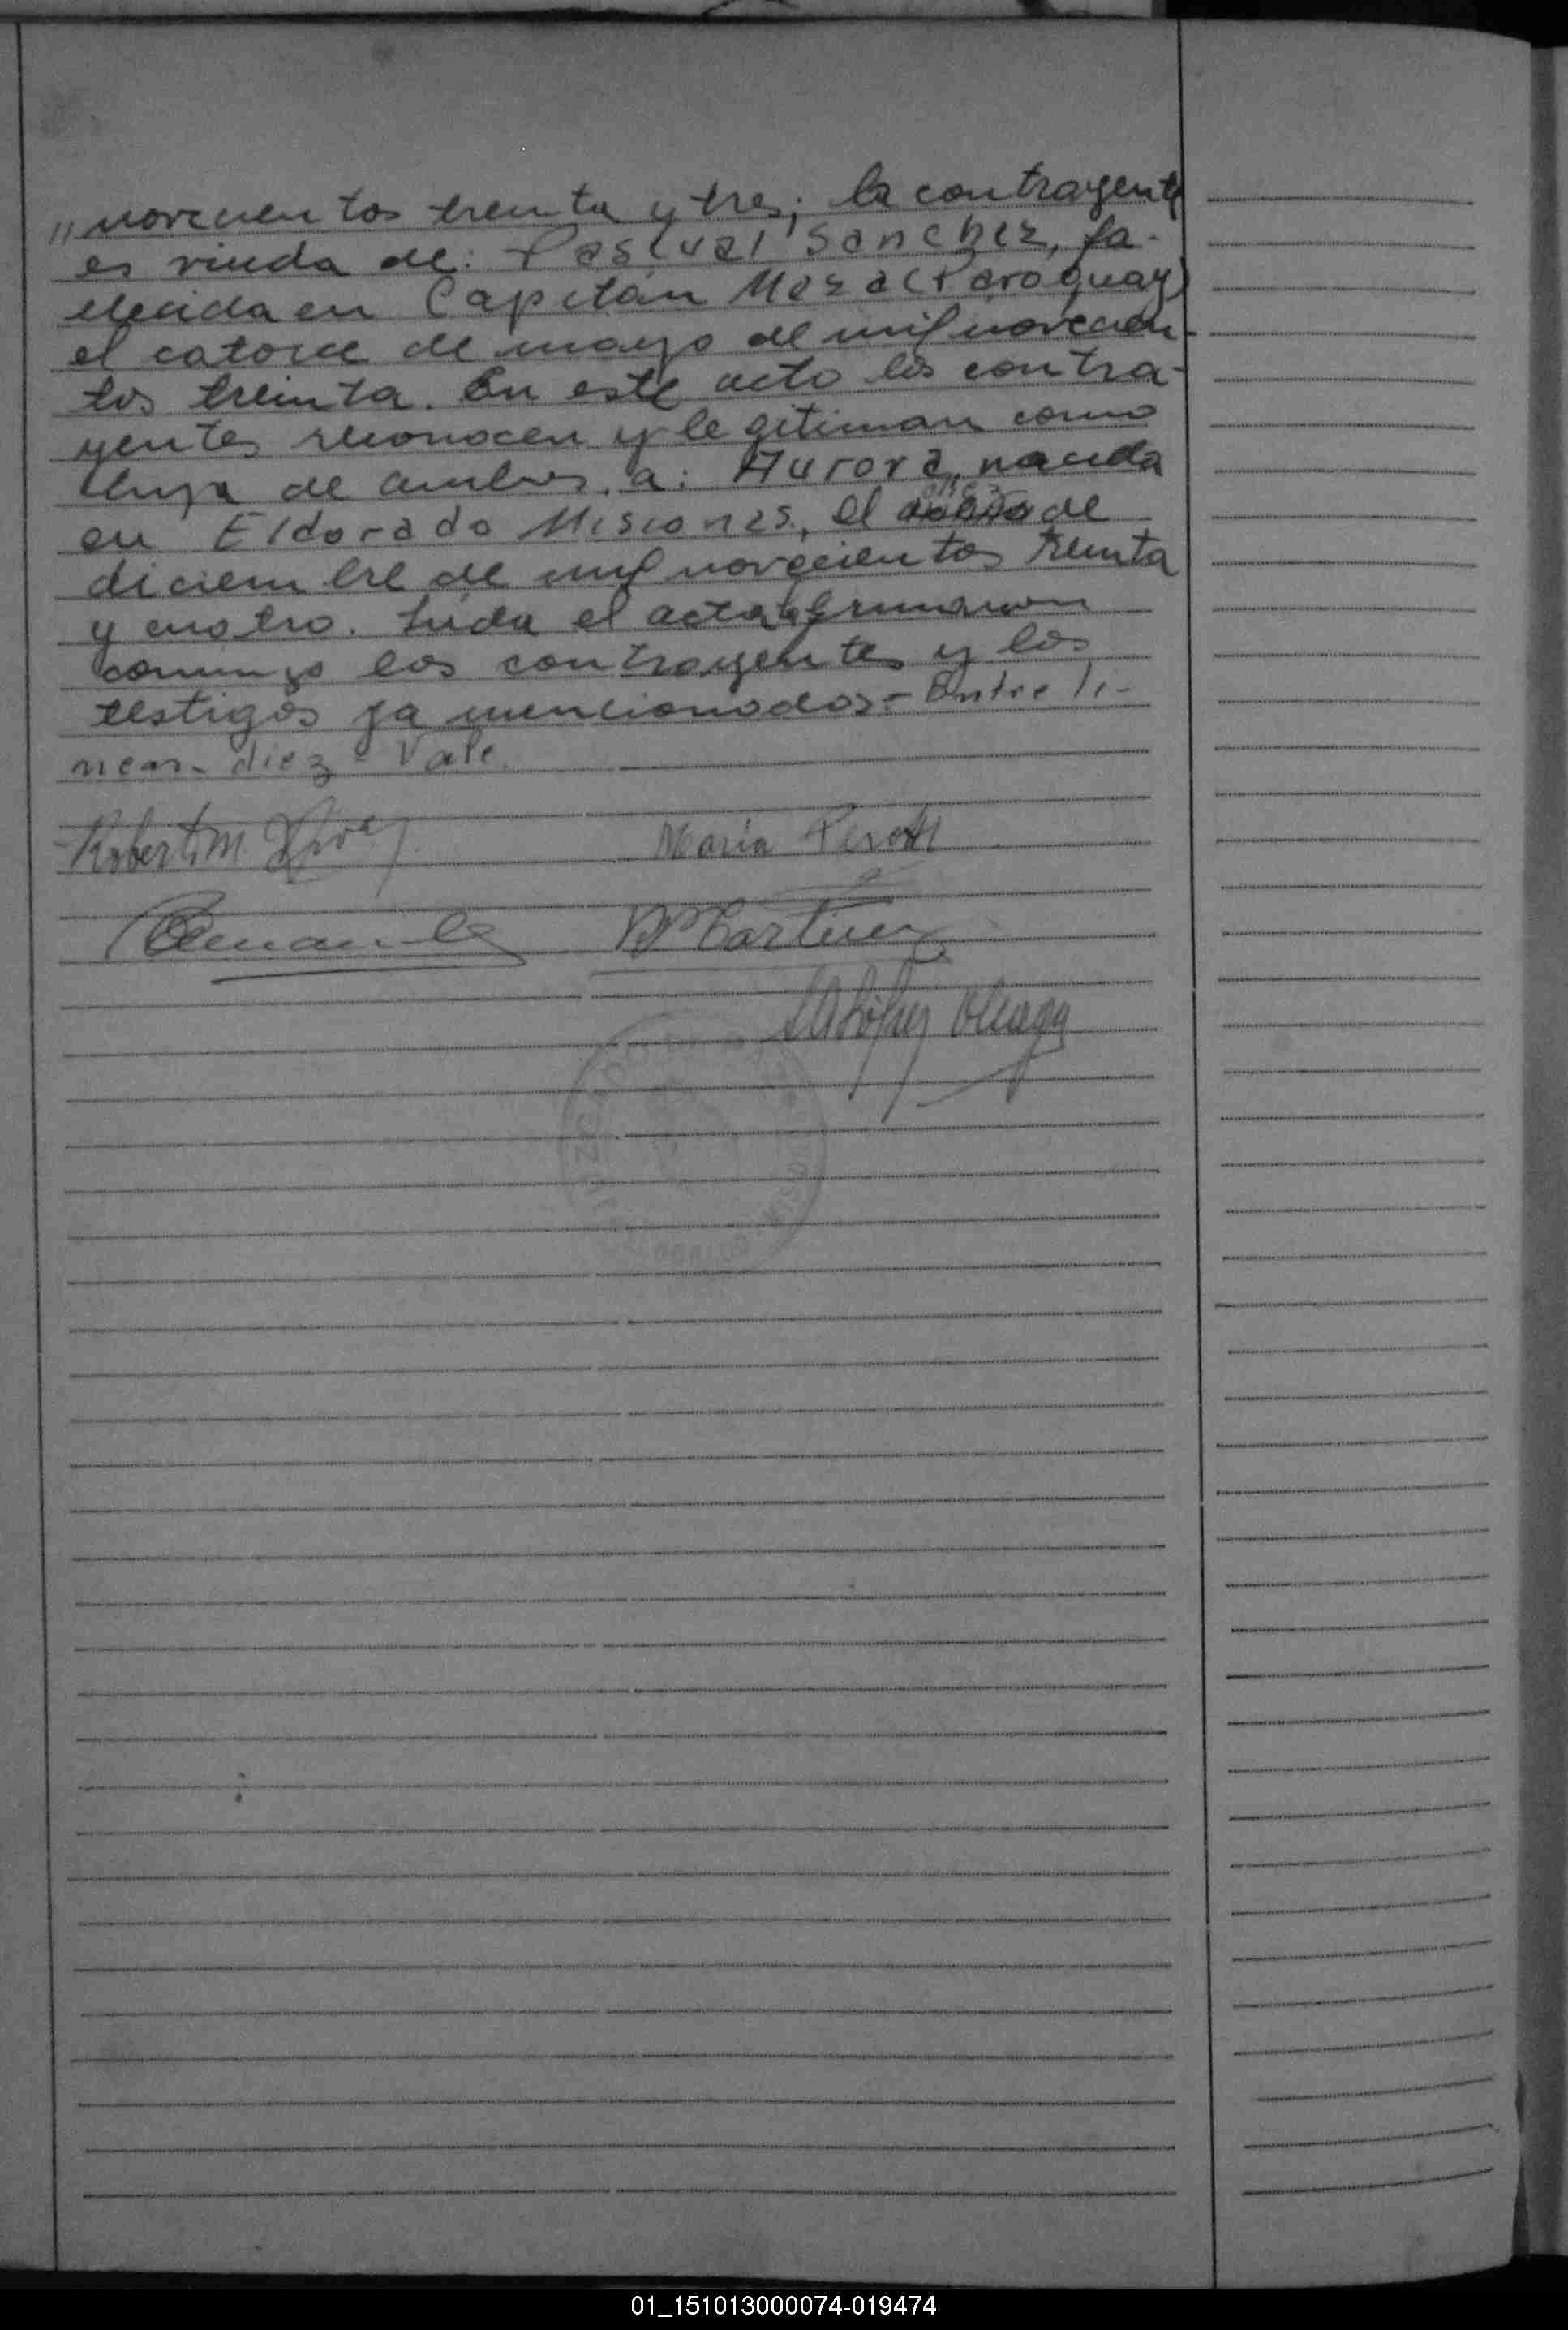 "novecientos treinta y tres; la contrayente
es viuda de: Pascual Sanchez, fa-
llecida en Capitán Meza (Paraguay)
el catorce de mayo de mil novecien-
tos treinta. En este acto los contra-
yentes reconocen y legitiman como
hija de ambos, a: Aurora, nacida
en Eldorado Misiones, el diez de
diciembre de mil novecientos treinta
y cuatro. Leída el acta la firmaron
conmigo los contrayentes y los
testigos ya mencionados = Entre li-
neas - diez - Vale.
María Perotti
01_151013000074-019474